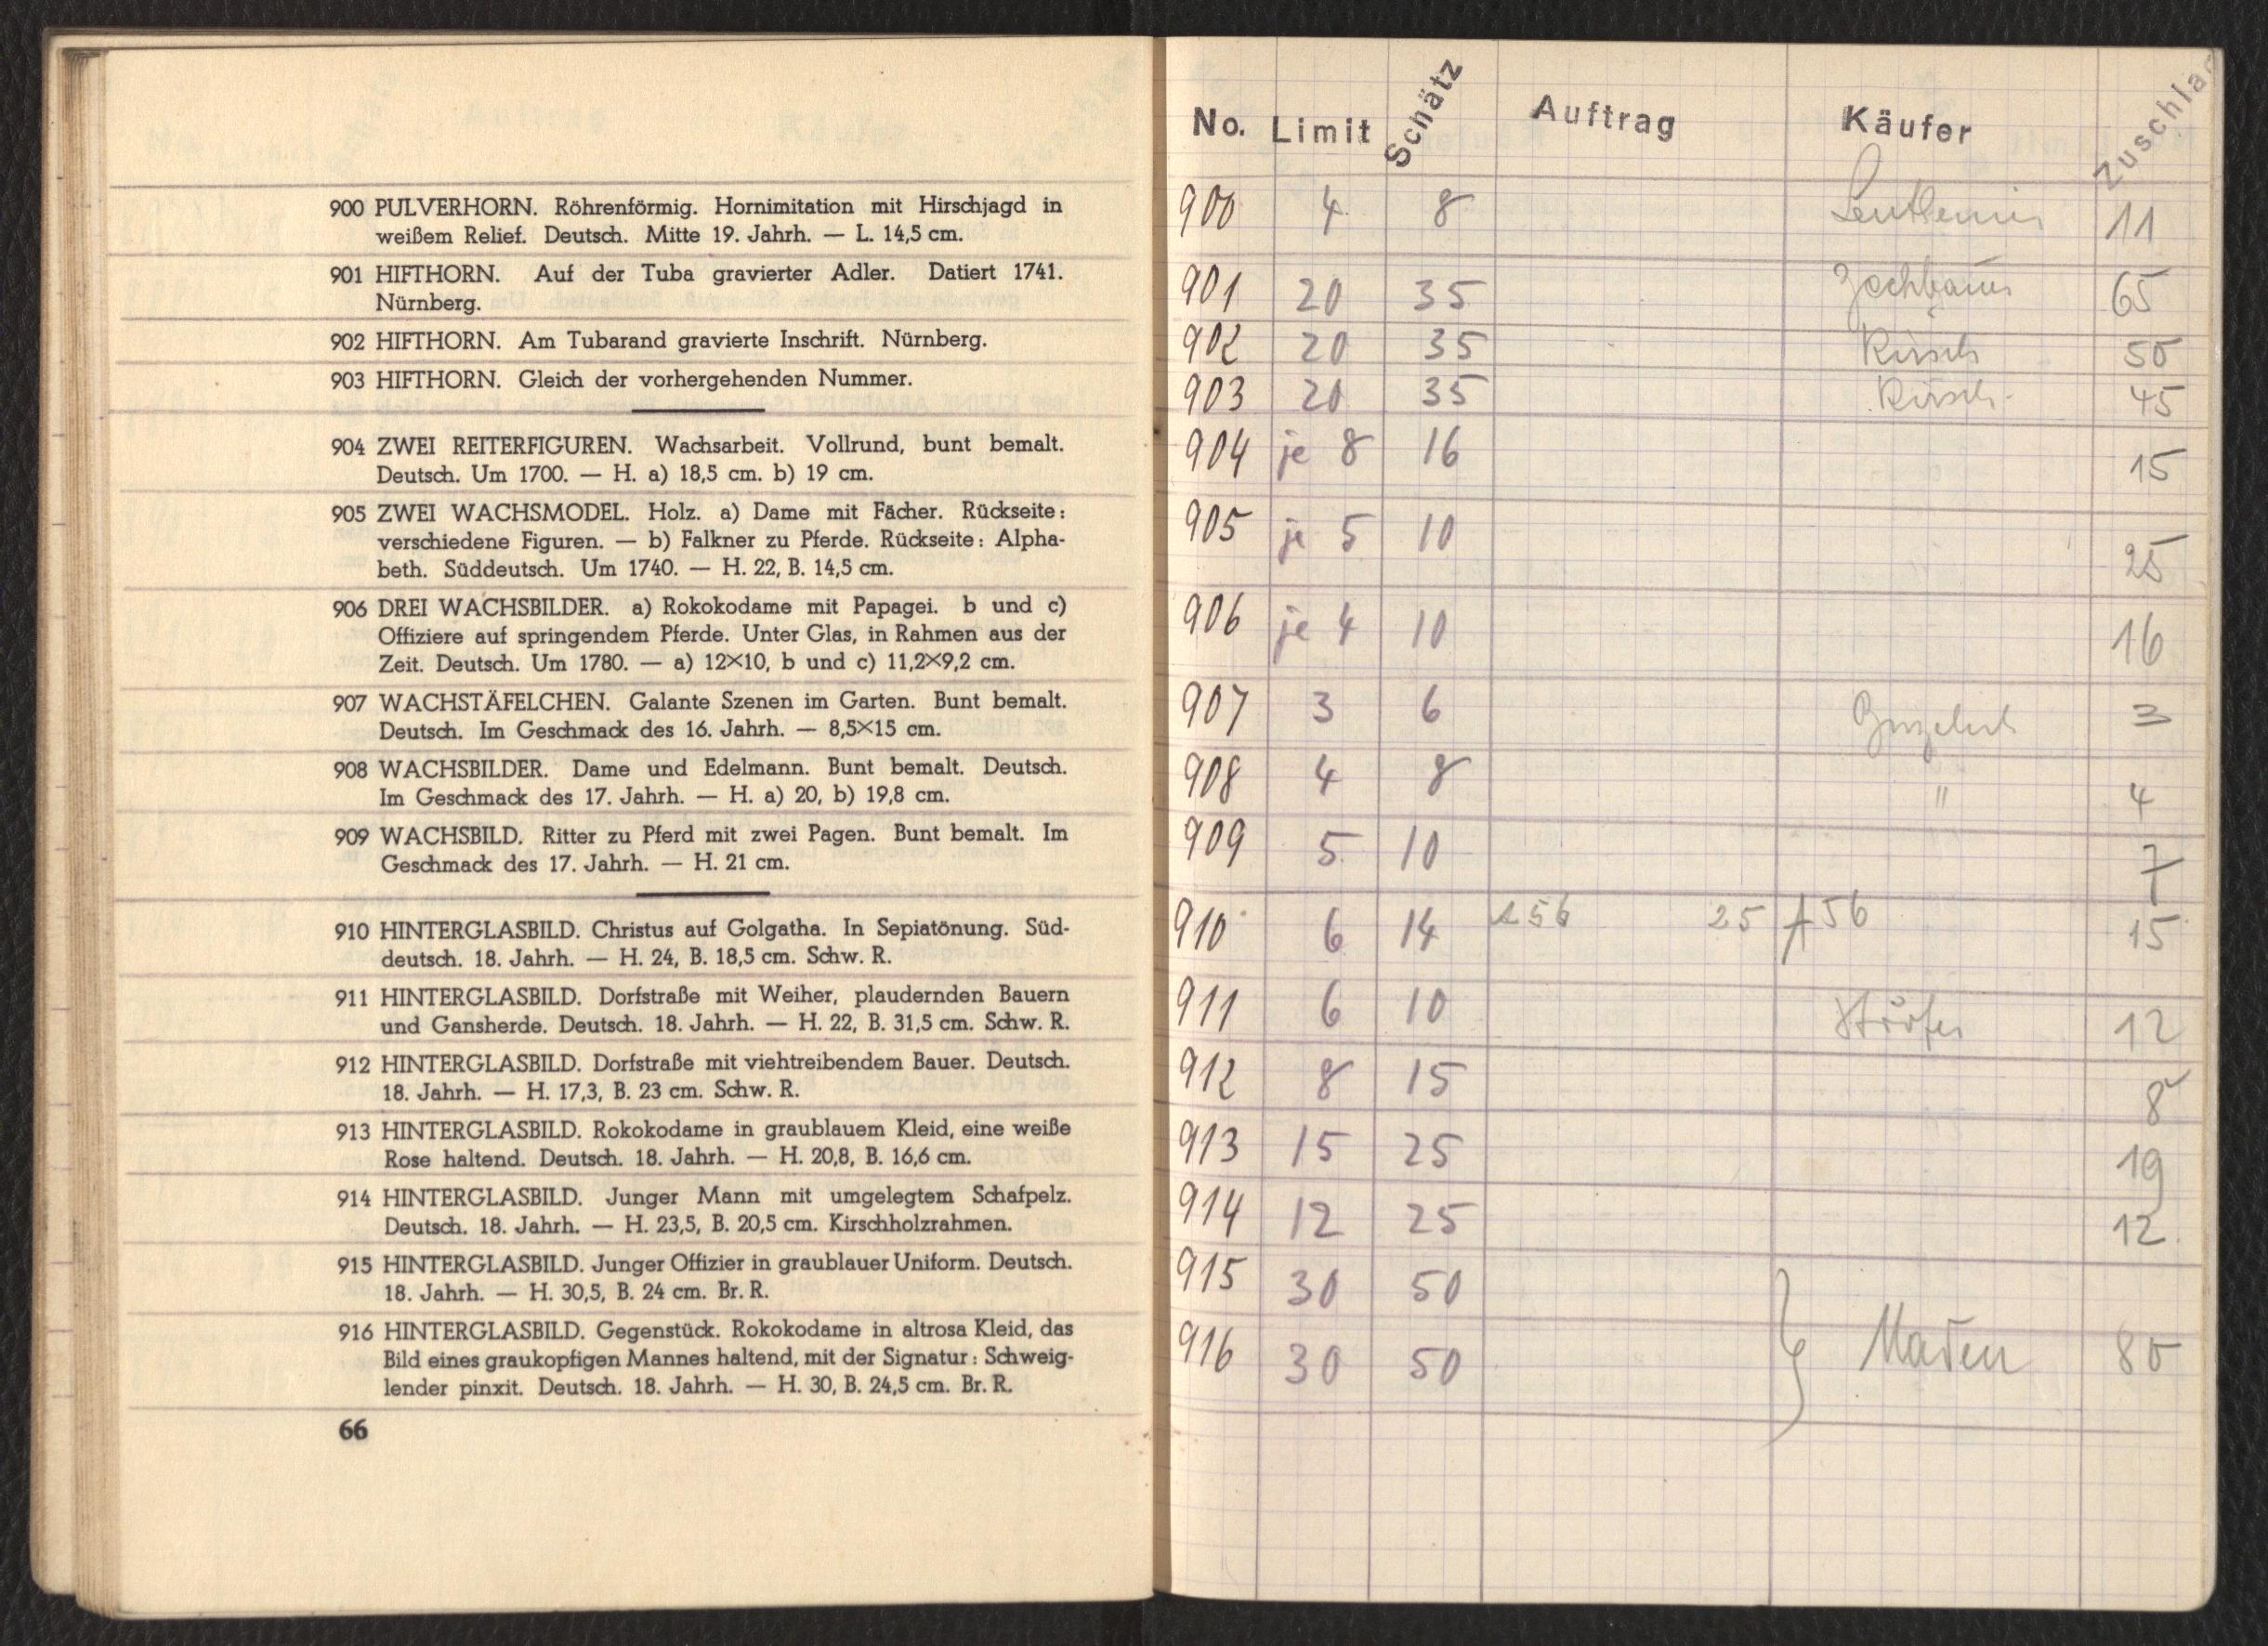 900 PULVERHORN. Röhrenförmig. Hornimitation mit Hirschjagd in
weißem Relief. Deutsch. Mitte 19. Jahrh. — L. 14,5 cm.
901 HIFTHORN. Auf der Tuba gravierter Adler. Datiert 1741.
Nürnberg.
902 HIFTHORN. Am Tubarand gravierte Inschrift. Nürnberg.
903 HIFTHORN. Gleich der vorhergehenden Nummer.
904 ZWEI REITERFIGUREN. Wachsarbeit. Vollrund, bunt bemalt.
Deutsch. Um 1700. — H. a) 18,5 cm. b) 19 cm.
905 ZWEI WACHSMODEL. Holz. a) Dame mit Fächer. Rückseite:
verschiedene Figuren. — b) Falkner zu Pferde. Rückseite: Alpha-
beth. Süddeutsch. Um 1740. — H. 22, B. 14,5 cm.
906 DREI WACHSBILDER. a) Rokokodame mit Papagei. b und c)
Offiziere auf springendem Pferde. Unter Glas, in Rahmen aus der
Zeit. Deutsch. Um 1780. — a) 12×10, b und c) 11,2×9,2 cm.
907 WACHSTÄFELCHEN. Galante Szenen im Garten. Bunt bemalt.
Deutsch. Im Geschmack des 16. Jahrh. — 8,5×15 cm.
908 WACHSBILDER. Dame und Edelmann. Bunt bemalt. Deutsch.
Im Geschmack des 17. Jahrh. — H. a) 20, b) 19,8 cm.
909 WACHSBILD. Ritter zu Pferd mit zwei Pagen. Bunt bemalt. Im
Geschmack des 17. Jahrh. — H. 21 cm.
910 HINTERGLASBILD. Christus auf Golgatha. In Sepiatönung. Süd-
deutsch. 18. Jahrh. — H. 24, B. 18,5 cm. Schw. R.
911 HINTERGLASBILD. Dorfstraße mit Weiher, plaudernden Bauern
und Gansherde. Deutsch. 18. Jahrh. — H. 22, B. 31,5 cm. Schw. R.
912 HINTERGLASBILD. Dorfstraße mit viehtreibendem Bauer. Deutsch.
18. Jahrh. — H. 17,3, B. 23 cm. Schw. R.
913 HINTERGLASBILD. Rokokodame in graublauem Kleid, eine weiße
Rose haltend. Deutsch. 18. Jahrh. — H. 20,8, B. 16,6 cm.
914 HINTERGLASBILD. Junger Mann mit umgelegtem Schafpelz.
Deutsch. 18. Jahrh. — H. 23,5, B. 20,5 cm. Kirschholzrahmen.
915 HINTERGLASBILD. Junger Offizier in graublauer Uniform. Deutsch.
18. Jahrh. — H. 30,5, B. 24 cm. Br. R.
916 HINTERGLASBILD. Gegenstück. Rokokodame in altrosa Kleid, das
Bild eines graukopfigen Mannes haltend, mit der Signatur: Schweig-
lender pinxit. Deutsch. 18. Jahrh. — H. 30, B. 24,5 cm. Br. R.
66
No. Limit Schätz Auftrag Käufer Zuschlag
900 4 8 11
901 20 35 65
902 20 35 50
903 20 35 45
904 je 8 16 15
905 je 5 10 25
906 je 4 10 16
907 3 6 3
908 4 8 " 4
909 5 10 7
910 6 14 56 25 A 56 15
911 6 10 12
912 8 15 8
913 15 25 19
914 12 25 12.
915 30 50
916 30 50 80